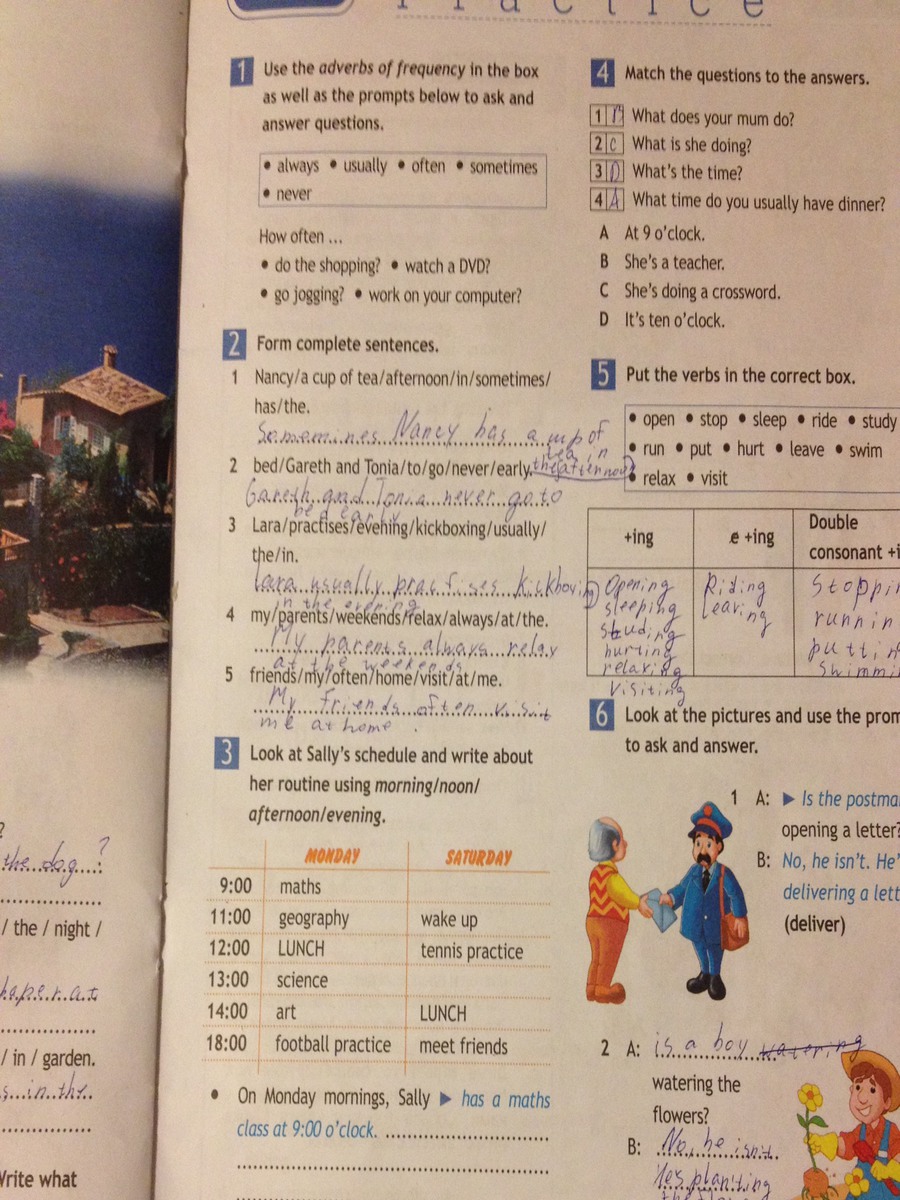 ?
the dog ?
/ the / night /
/ in / garden.
s in the
Write what
Practice
1 Use the adverbs of frequency in the box
as well as the prompts below to ask and
answer questions.
• always • usually • often • sometimes
• never
How often ...
• do the shopping? • watch a DVD?
• go jogging? • work on your computer?
2 Form complete sentences.
1 Nancy/a cup of tea/afternoon/in/sometimes/
has/the.
Nancy has a cup of
tea in
the afternoon
2 bed/Gareth and Tonia/to/go/never/early.
Gareth and Tonia never go to
bed early
3 Lara/practises/evening/kickboxing/usually/
the/in.
Lara usually practises kickboxin
in the evening
4 my/parents/weekends/relax/always/at/the.
My parents always relax
at the weekends
5 friends/my/often/home/visit/at/me.
My friends often visit
me at home.
3 Look at Sally's schedule and write about
her routine using morning/noon/
afternoon/evening.
MONDAY SATURDAY
9:00 maths
11:00 geography wake up
12:00 LUNCH tennis practice
13:00 science
14:00 art LUNCH
18:00 football practice meet friends
• On Monday mornings, Sally ▶ has a maths
class at 9:00 o'clock.
4 Match the questions to the answers.
1 What does your mum do?
2 C What is she doing?
3 D What's the time?
4 A What time do you usually have dinner?
A At 9 o'clock.
B She's a teacher.
C She's doing a crossword.
D It's ten o'clock.
5 Put the verbs in the correct box.
• open • stop • sleep • ride • study
• run • put • hurt • leave • swim
• relax • visit
+ing e +ing Double
consonant +i
Opening Riding Stoppin
sleeping leaving runnin
studing puttin
hurting swimmi
relaxing
visiting
6 Look at the pictures and use the prom
to ask and answer.
1 A: ▶ Is the postma
opening a letter?
B: No, he isn't. He'
delivering a lett
(deliver)
2 A: is a boy watering
watering the
flowers?
B: No, he isn't.
planting